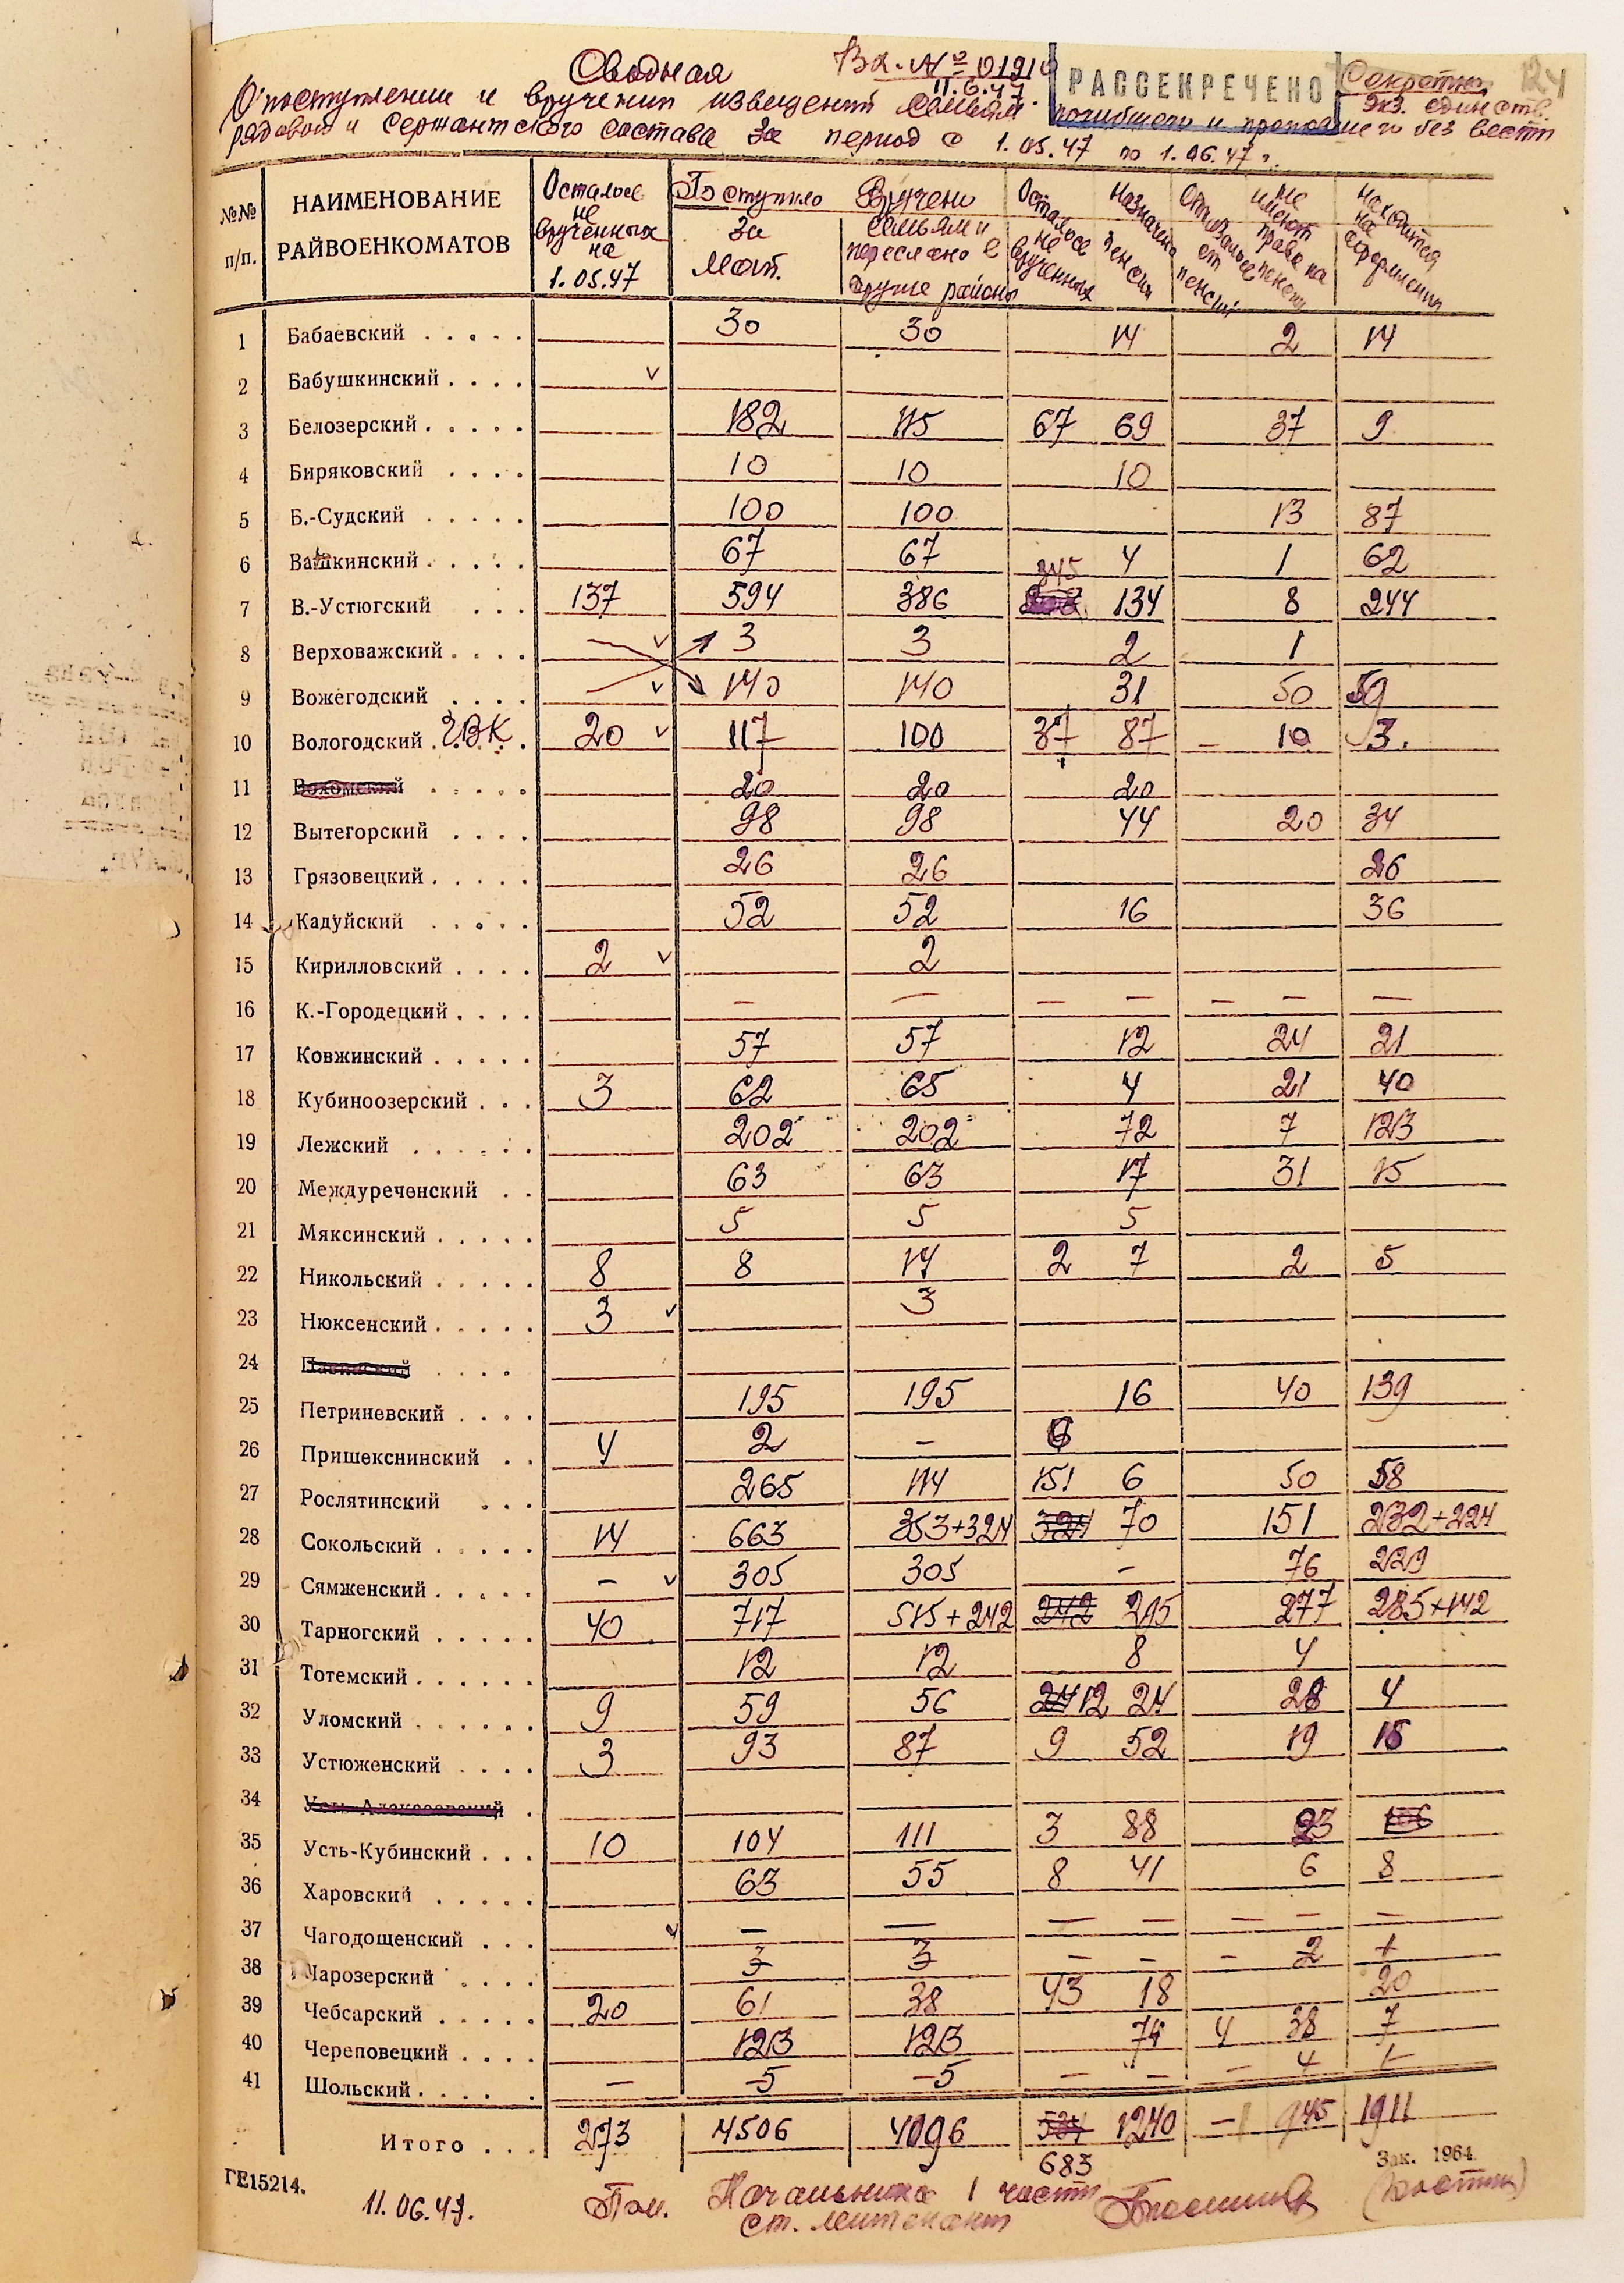 Сводная Вх. №01910 РАССЕКРЕЧЕНО Секретно 124
11.6.47 экз. единств.
О поступлении и вручении извещений семьям погибшего и пропавшего без вести
рядового и сержантского состава за период с 1.05.47 по 1.06.47 г.
№№ п/п. НАИМЕНОВАНИЕ РАЙВОЕНКОМАТОВ Осталось не врученных на 1.05.47 Поступило за май. Вручено семьям и переслано в другие районы Осталось не врученных Назначено пенсия Отказалось от пенсии Не имеют права на пенсию Находится на оформлении
1 Бабаевский 30 30 14 2 14
2 Бабушкинский v
3 Белозерский 182 115 67 69 37 9
4 Биряковский 10 10 10
5 Б.-Судский 100 100 13 87
6 Вашкинский 67 67 4 1 62
7 В.-Устюгский 137 594 386 345 134 8 244
8 Верховажский v 3 3 2 1
9 Вожегодский v 140 140 31 50 59
10 Вологодский ГВК 20 v 117 100 37 87 – 10 3.
11 Вохомский 20 20 20
12 Вытегорский 98 98 44 20 34
13 Грязовецкий 26 26 26
14 Кадуйский 52 52 16 36
15 Кирилловский 2 v 2
16 К.-Городецкий – – – – – – –
17 Ковжинский 57 57 12 24 21
18 Кубиноозерский 3 62 65 4 21 40
19 Лежский 202 202 72 7 123
20 Междуреченский 63 63 17 31 15
21 Мяксинский 5 5 5
22 Никольский 8 8 14 2 7 2 5
23 Нюксенский 3 v 3
24 Павинский
25 Петриневский 195 195 16 40 139
26 Пришекснинский 4 2 – 6
27 Рослятинский 265 114 151 6 50 58
28 Сокольский 14 663 353+324 324 70 151 232+224
29 Сямженский – v 305 305 – 76 229
30 Тарногский 40 717 515+242 242 215 277 285+142
31 Тотемский 12 12 8 4
32 Уломский 9 59 56 24 12 24 28 4
33 Устюженский 3 93 87 9 52 19 16
34 Усть-Алексеевский
35 Усть-Кубинский 10 104 111 3 88 23
36 Харовский 63 55 8 41 6 8
37 Чагодощенский v – – – – – – –
38 Чарозерский 3 3 – – – 2 1
39 Чебсарский 20 61 38 43 18 20
40 Череповецкий 123 123 74 4 38 7
41 Шольский – 5 5 – – – 4 1
Итого 273 4506 4096 1240 945 1911
683
ГЕ15214. Зак. 1964.
11.06.47. Пом. Начальника 1 части
ст. лейтенант